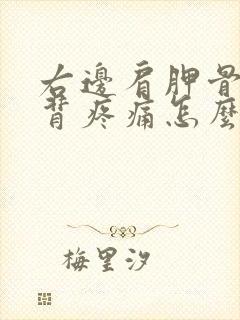 右邊肩胛骨
背疼痛怎麼
梅里汐